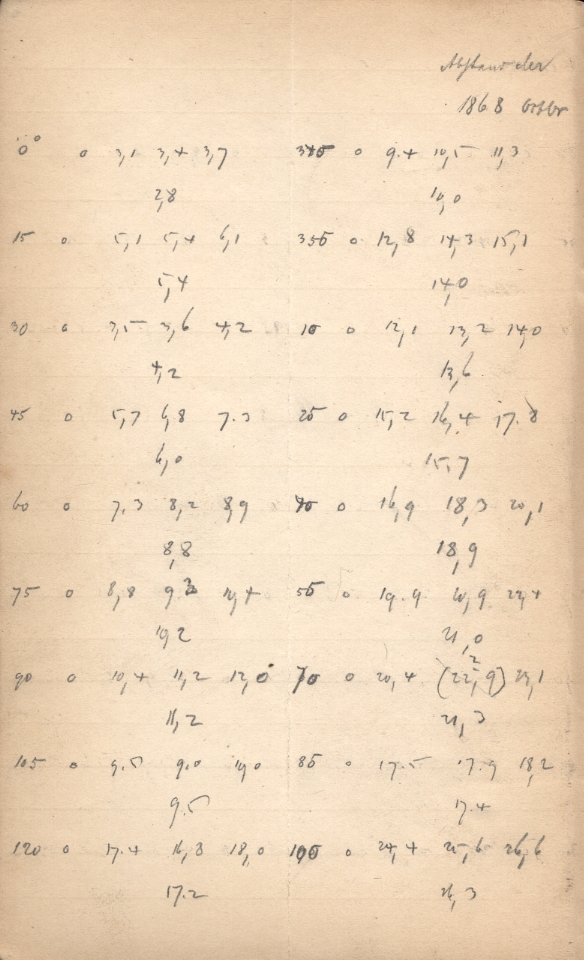 1868 Octbr
0° 0 3,1 3,4 3,7 345 0 9.4 10,5 11,3
2,8 10,0
15 0 5,1 5,4 6,1 355 0 12,8 14,3 15,1
5,4 14,0
30 0 3,5 3,6 4,2 10 0 12,1 13,2 14,0
4,2 13,6
45 0 5,7 6,8 7.3 25 0 15,2 16,4 17.8
6,0 15,7
60 0 7,3 8,2 8,9 40 0 16,9 18,3 20,1
8,8 18,9
75 0 8,8 9.3 10,4 55 0 19.9 20,9 22,4
10,2 21,0
90 0 10,4 11,2 12,0 70 0 20,4 (22,9) 23,1
11,2 21,3
105 0 9.5 9.0 10,0 85 0 17.5 17.9 18,2
9.5 17.4
120 0 17.4 16,3 18,0 100 0 24,4 25,6 26,6
17.2 26,3